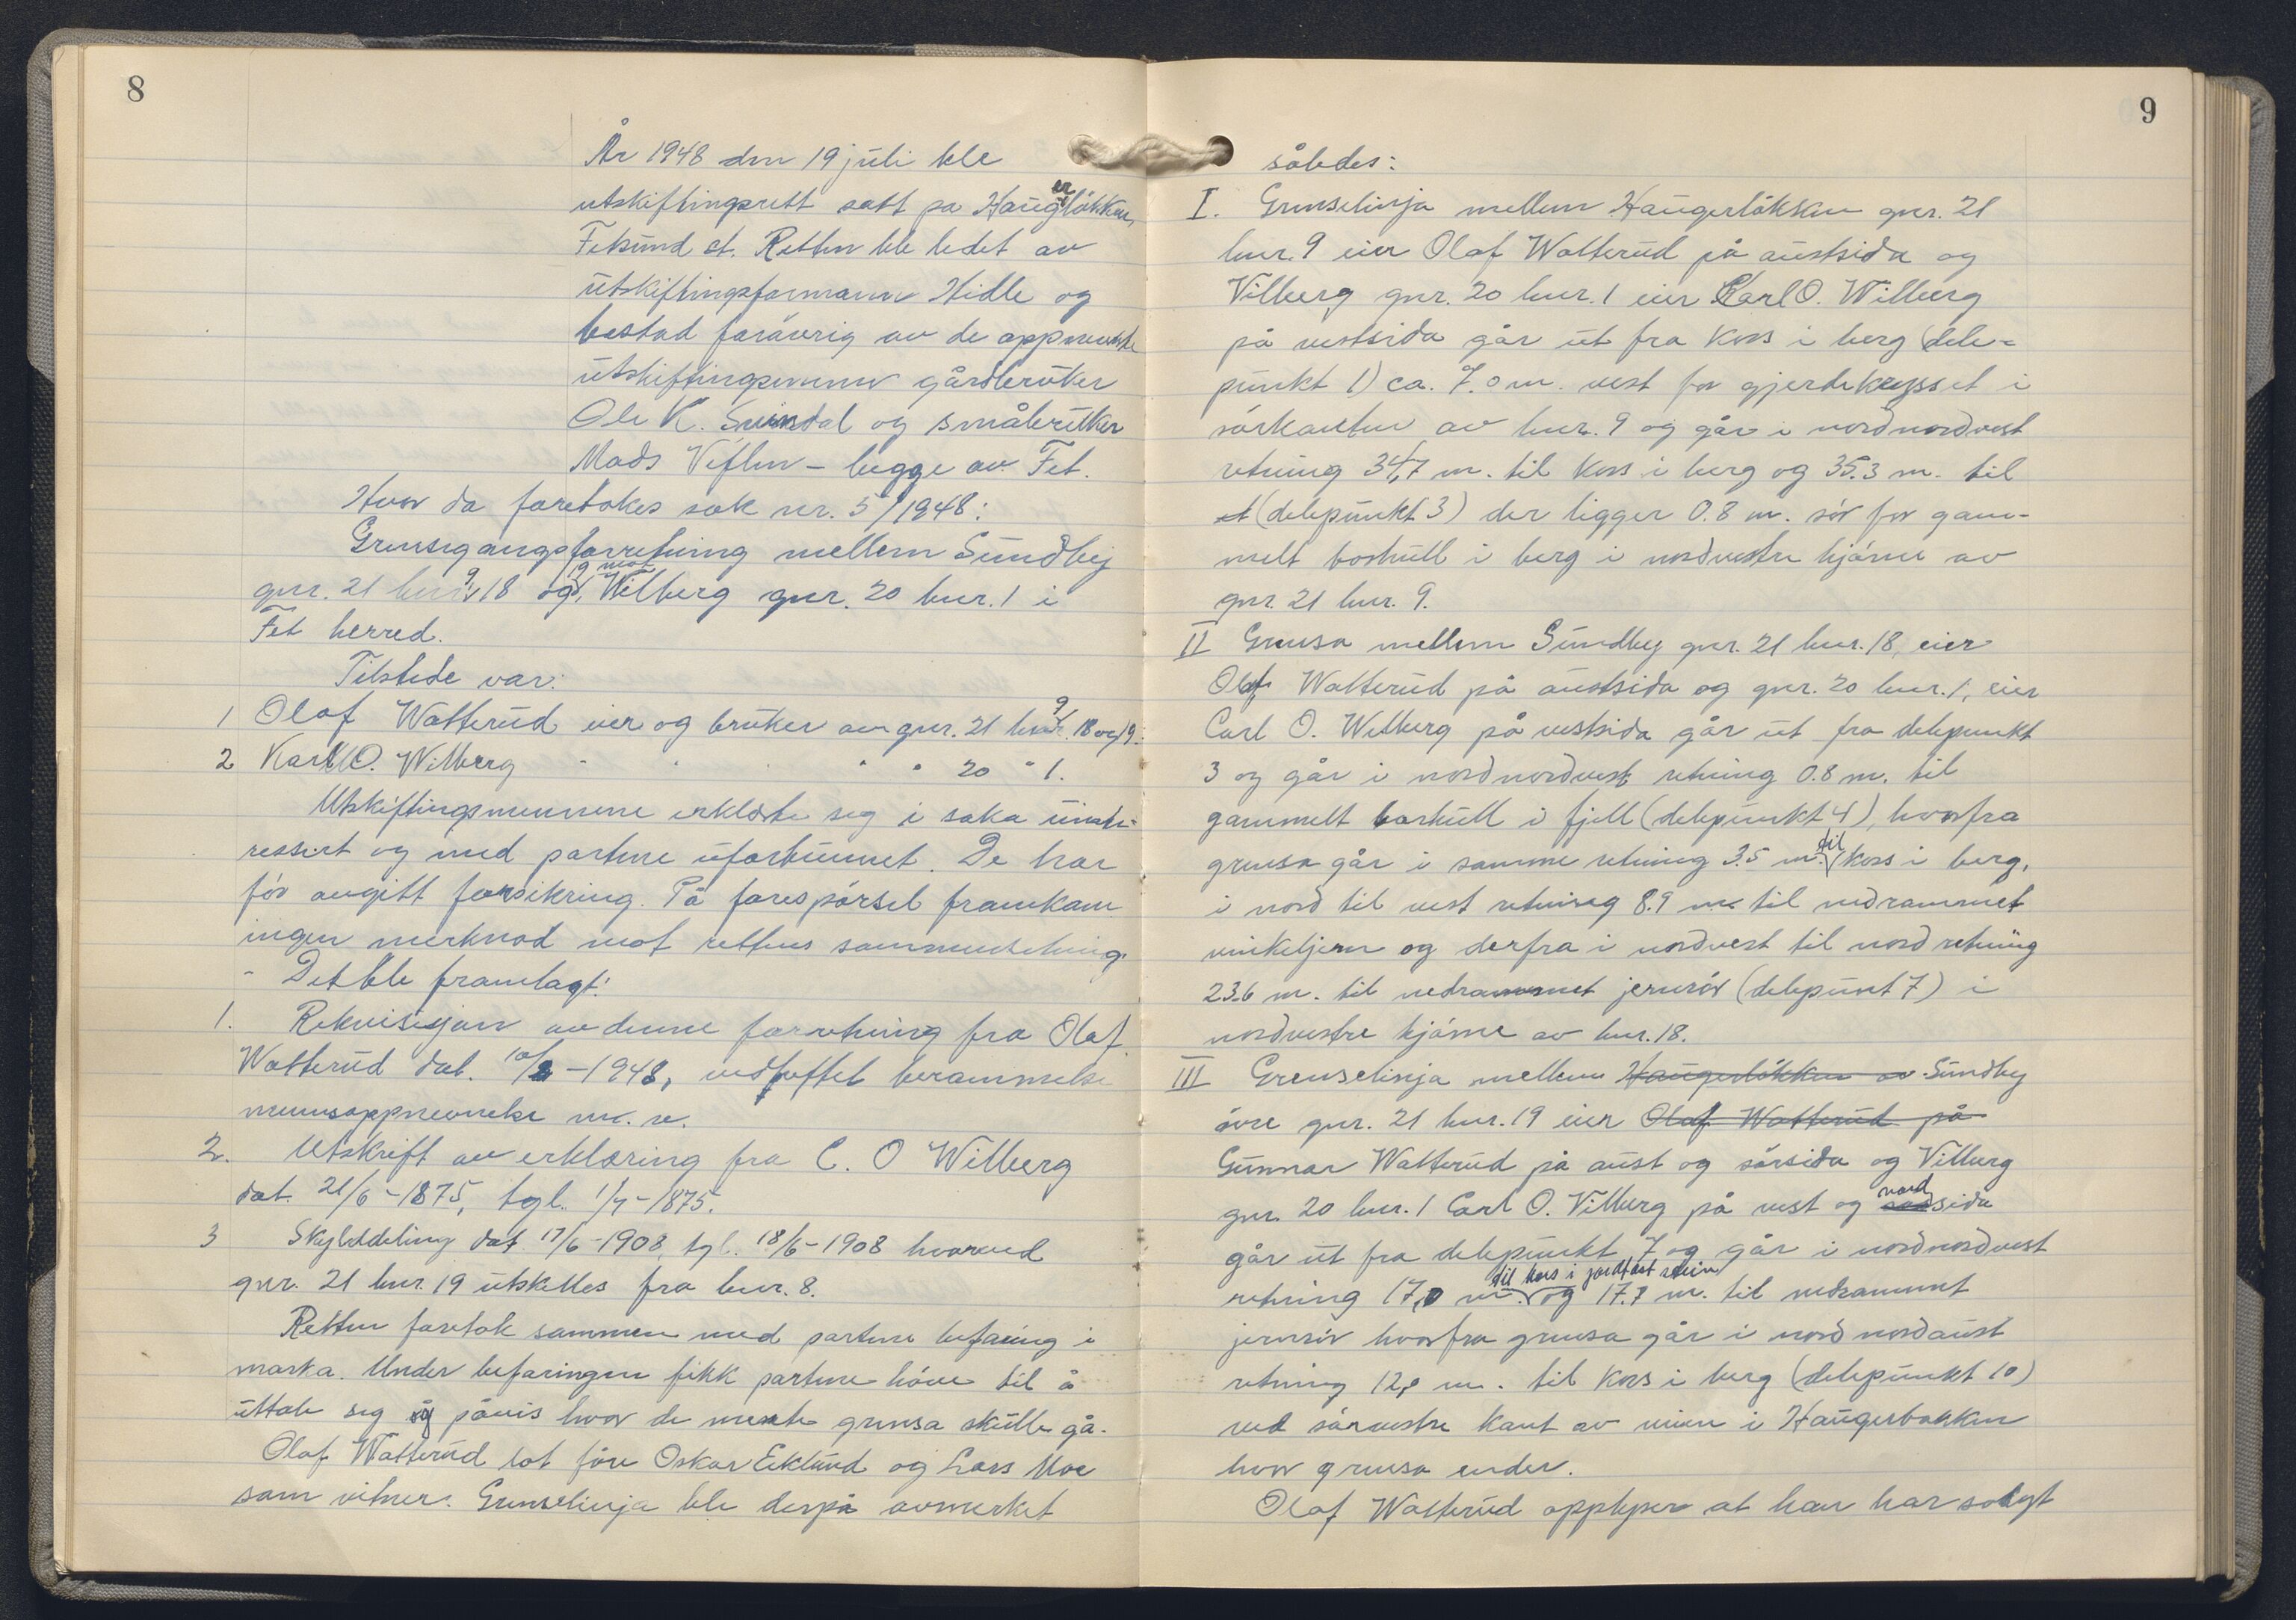 8
År 1948 den 19 juli ble
utskiftingsrett satt på Haugerløkken,
Fetsund st. Retten ble ledet av
utskiftingsformann Hidle og
bestod forøvrig av de oppnevnte
utskiftingsmenn gårdbruker
Ole K. Svindal og småbruker
Mads Veflen – begge av Fet.
Hvor da foretokes sak nr. 5/1948:
Grensegangsforretning mellem Sundby
gnr. 21 bnr. 9, 18 og 19 mot Wilberg gnr. 20 bnr. 1 i
Fet herred.
Tilstede var:
1 Olaf Watterud eier og bruker av gnr. 21 bnr. 9, 18 og 19.
2 Karl O. Wilberg " " " " " 20 " 1.
Utskiftingsmennene erklærte seg i saka uinte-
ressert og med partene uforbunnet. De har
før avgitt forsikring. På forespørsel framkom
ingen merknad mot rettens sammensetning.
- Det ble framlagt:
1. Rekvisisjon av denne forretning fra Olaf
Watterud dat. 10/2 - 1948, vedheftet berammelse
mennsoppnevnelse m. v.
2. Utskrift av erklæring fra C. O Wilberg
dat. 21/6 - 1875, tgl. 1/7 - 1875.
3 Skylddeling dat 17/6 - 1908, tgl. 18/6 - 1908 hvorved
gnr. 21 bnr. 19 utskilles fra bnr. 8.
Retten foretok sammen med partene befaring i
marka. Under befaringen fikk partene høve til å
uttale seg og påvis hvor de mente grensa skulle gå.
Olaf Watterud lot føre Oskar Eklund og Lars Moe
som vitner. Grenselinja ble derpå avmerket
9
således:
I. Grenselinja mellem Haugerløkken gnr. 21
bnr. 9 eier Olaf Watterud på austsida og
Vilberg gnr. 20 bnr. 1 eier Carl O. Wilberg
på vestsida går ut fra kors i berg (dele-
punkt 1) ca. 7.0 m. vest for gjerdekrysset i
sørkanten av bnr. 9 og går i nordnordvest
retning 34,7 m. til kors i berg og 35.3 m. til
et (delepunkt 3) der ligger 0.8 m. sør for gam-
melt borhull i berg i nordvestre hjørne av
gnr. 21 bnr. 9.
II Grensa mellem Sundby gnr. 21 bnr. 18, eier
Olaf Watterud på austsida og gnr. 20 bnr. 1, eier
Carl O. Wilberg på vestsida går ut fra delepunkt
3 og går i nordnordvest retning 0.8 m. til
gammelt borhull i fjell (delepunkt 4), hvorfra
grensa går i samme retning 3.5 m. til kors i berg,
i nord til vest retning 8.9 m. til nedrammet
vinkeljern og derfra i nordvest til nord retning
23.6 m. til nedrammet jernrør (delepunt 7) i
nordvestre hjørne av bnr. 18.
III Grenselinja mellem Haugerløkken av Sundby
øvre gnr. 21 bnr. 19 eier Olaf Watterud på
Gunnar Watterud på aust og sørsida og Vilberg
gnr. 20 bnr. 1 Carl O. Vilberg på vest og nordsida
går ut fra delepunkt 7 og går i nordnordvest
retning 17,0 m. til kors i jordfast stein og 17.7 m. til nedrammet
jernrør hvorfra grensa går i nord nordaust
retning 12,0 m. til kors i berg (delepunkt 10)
ved sørvestre kant av veien i Haugerbakken
hvor grensa ender.
Olaf Watterud opplyser at han har solgt